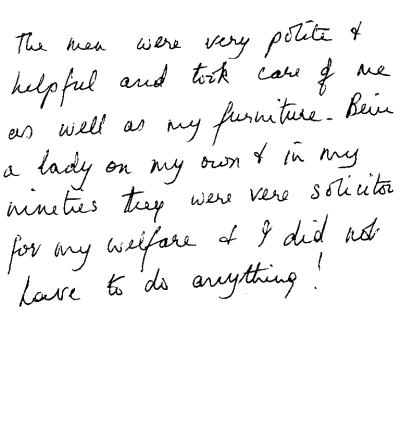 The men were very polite &
helpful and took care of me
as well as my furniture. Bein
a lady on my own & in my
nineties they were vere solicitou
for my welfare & I did not
have to do anything!